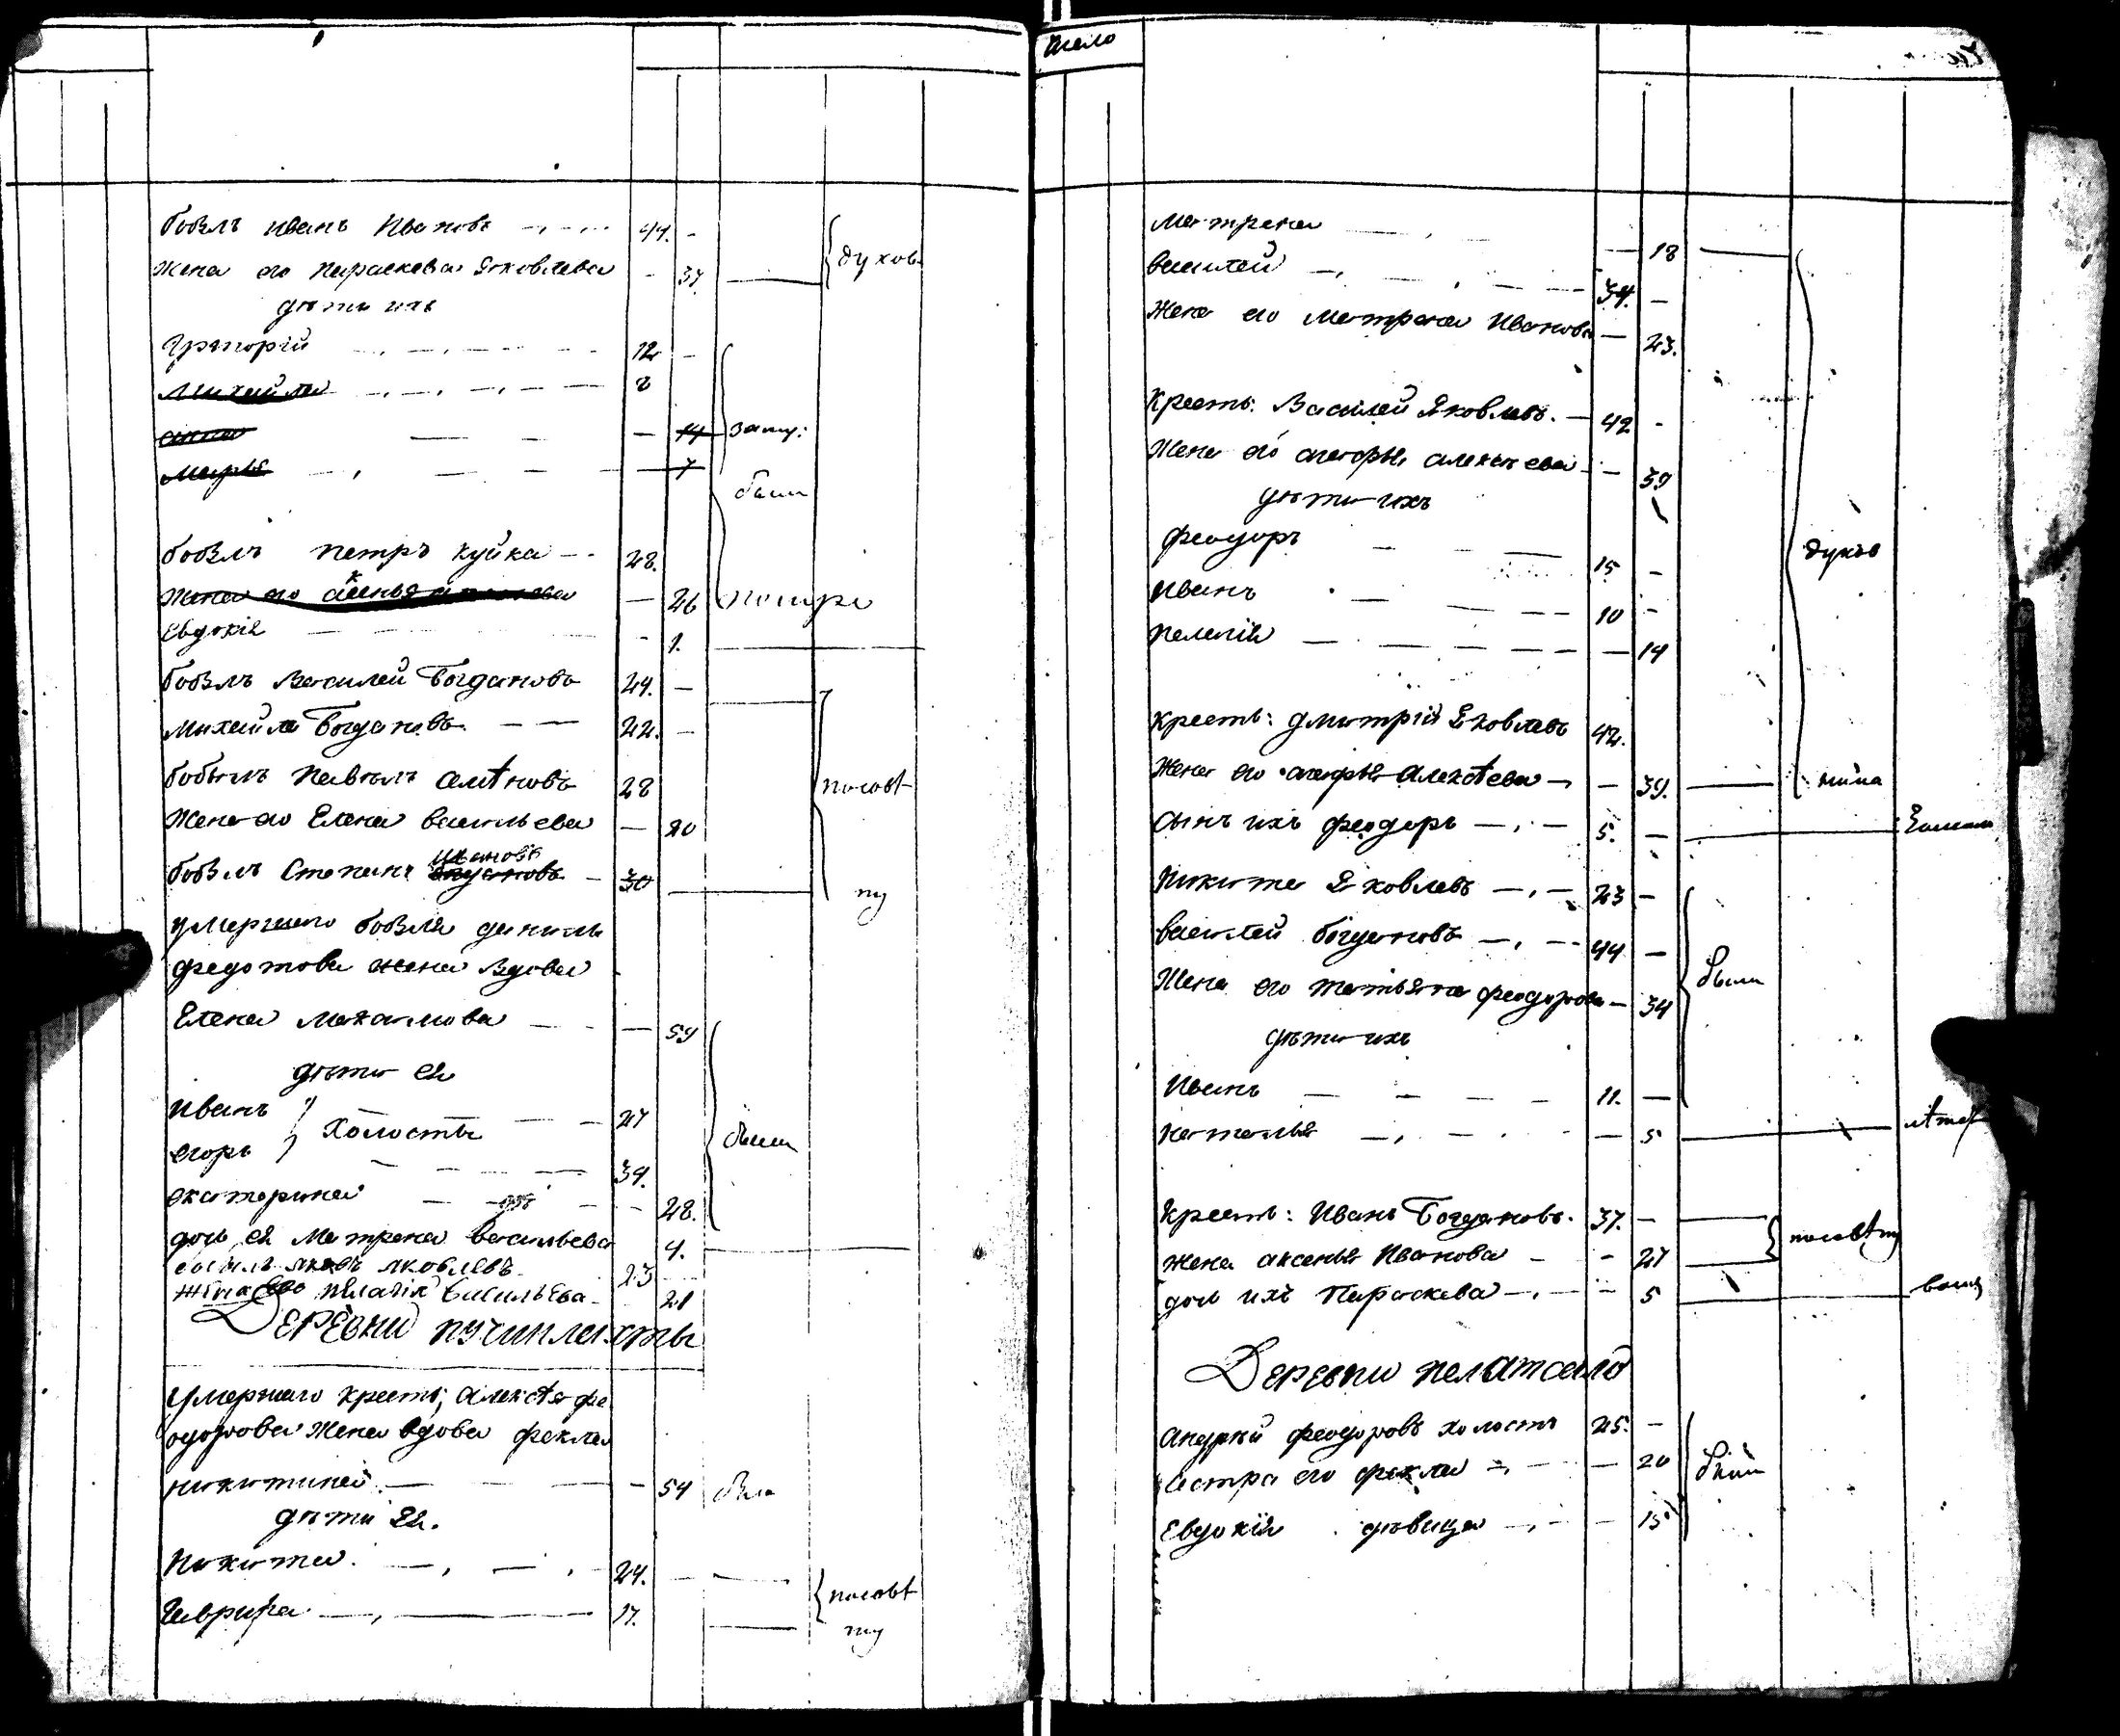 бобыль иванъ Ивановъ 44. -
жена его параскева Яковлева - 37. духов
дѣти ихъ
Григорій 12 -
михайла 8
анна - 14 заму:
марья - 7
были
бобыль петръ куйка 28.
жена его аксенья - 26 по мужѣ
евдокія - 1.
бобыль Василей Богдановъ 24. -
михайла Богдановъ 22. -
бобыль павелъ 28 посовѣ
жена его Елена васильева - 20
ивановъ
бобыль Степанъ 30 ту
умершаго бобыля данилы
федотова жена вдова
Елена максимова - 59
дѣти ея
иванъ холосты 27
егоръ 34. были
екатерина 28.
дочь ея матрена васильева 4.
яковлевъ 23
жена его пелагія васильева 21
Деревни
умершаго кресть; алексѣя фе
одорова жена вдова фекла
никитина - 54 была
дѣти ея.
никита 24. посовѣ
гаврила 17. ту
число
матрена - 18
василей 34. -
жена его матрена иванова - 23.
кресть: Василей Яковлевъ 42 -
жена его агафья алексѣева - 39
дѣти ихъ
феодоръ 15 - духов
иванъ 10 -
пелагія - 14
кресть: дмитрій Яковлевъ 42.
жена его агафья алексѣева - 39. ника
сынъ ихъ феодоръ 5. -
никита Яковлевъ 23 -
василей богдановъ 44 -
жена его татьяна феодорова - 34 были
дѣти ихъ
иванъ 11. -
наталья - 5
кресть: иванъ Богдановъ. 37. -
жена аксенья иванова - 27 посовѣту
дочь ихъ параскева - 5
Деревни пелатсало
андрей феодоровъ холостъ 25. -
сестра его фекла - 20 были
евдокія дѣвица - 15